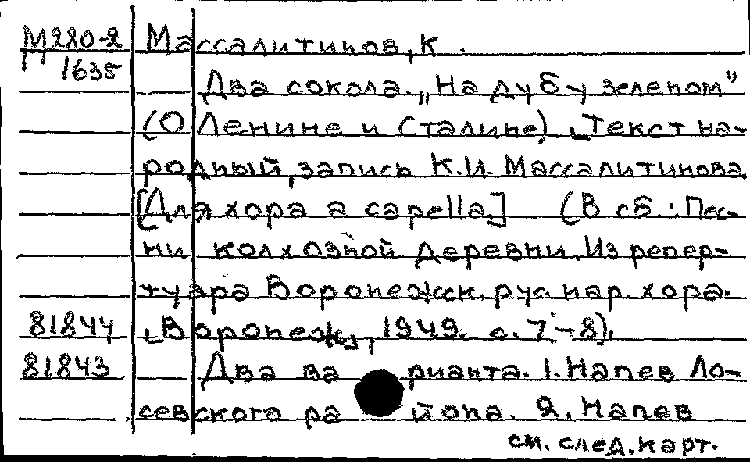 М220-2 Массалитинов, К.
1635 Два сокола. „На дубу зеленом"
(О Ленине и Сталине) [Текст на-
родный, запись К.И. Массалитинова
[Для хора a capella.] (В сб.: Пес-
ни колхозной деревни. Из репер-
туара Воронежск. рус. нар. хора.
81844 [Воронеж], 1949. с. 7-8).
81843 Два варианта. 1. Напев Ло-
севского района. 2. Напев
см. след. карт.